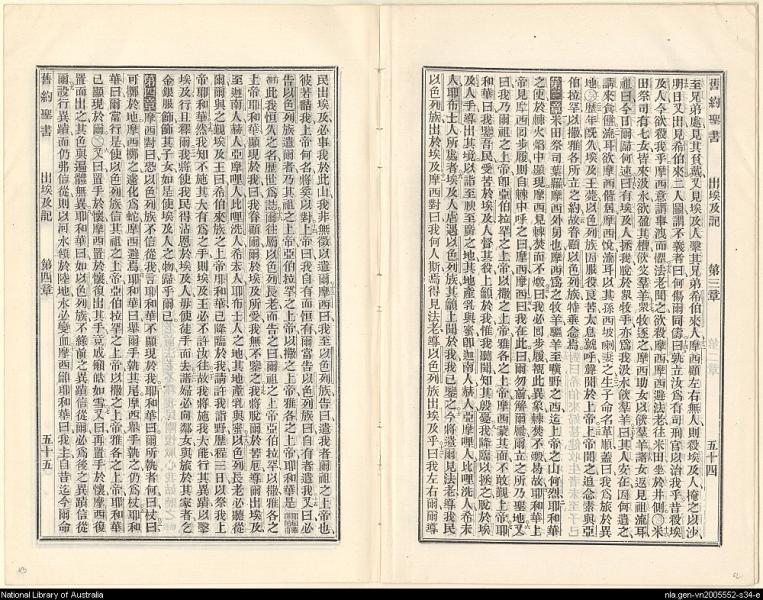 舊約聖書 出埃及記 第三章 五十四
至兄弟處見其負戴又見埃及人擊其兄弟希伯來人摩西顧左右無人則殺埃及人掩之以沙
明日又出見希伯來二人鬭謂不義者曰何傷爾同儔曰孰立汝爲有司刑官以治我乎昔殺埃
及人今欲殺我乎摩西意謂事洩而懼法老聞之欲殺摩西摩西避法老往米田坐於井側〇米
田祭司有七女皆來汲水欲盈其槽飲父羣羊衆牧逐之摩西助女以飲羣羊諸女返見祖流耳
祖曰今日爾歸何速曰有埃及人拯我脫於衆牧手亦爲我汲水飲羣羊曰其人安在因何遺之
請來食餼流耳欲摩西偕居摩西悅流耳以其孫西坡喇妻之生子命名革順蓋曰我爲旅於異
地〇歷年旣久埃及王薨以色列族因服役良苦太息號呼聲聞於上帝上帝聞之追念素與亞
伯拉罕以撒雅各所立之約故眷顧以色列族特垂念焉
第三章 米田祭司葉羅摩西外舅也摩西爲之牧羊驅羊至曠野之西近上帝之山何烈耶和華
之使於棘火焰中顯現摩西見棘焚而不燬曰我必囘步履視此異象棘焚不燬易故耶和華上
帝見摩西囘步履則自棘中呼之曰摩西摩西曰我在此曰爾勿前解爾屨爾立之所乃聖地又
曰我乃爾祖之上帝卽亞伯拉罕之上帝以撒之上帝雅各之上帝摩西蒙其面不敢覲上帝耶
和華曰我鑒吾民受苦於埃及人督其役上籲於我惟我聽聞知其殷憂我降臨以拯之脫於埃
及人手導出其境以詣至腴至廣之地其地產乳與蜜卽迦南人赫人亞摩哩人比哩洗人希未
人耶布士人所處者埃及人虐遇以色列族其籲上聞於我我已鑒之今將遣爾見法老導我民
以色列族出於埃及摩西對曰我何人斯焉得見法老導以色列族出埃及乎曰我左右爾爾導
民出埃及必事我於此山我非無徵以遣爾摩西曰我至以色列族告曰遣我者爾祖之上帝也
彼若詰我上帝何名將奚以對上帝曰我自有而恒有爾當告以色列族曰自有者遣我又曰必
告以色列族遣爾者乃其祖之上帝亞伯拉罕之上帝以撒之上帝雅各之上帝耶和華是
此我恒久之名歷世爲誌爾往廣以色列長老而告之曰爾祖之上帝亞伯拉罕以撒雅各之
上帝耶和華顯現於我曰我眷顧爾爾於埃及所受我無不鑒之我將脫爾於苦厄導爾出埃及
至迦南人赫人亞摩哩人比哩洗人希未人耶布士人之地其地產乳與蜜以色列長老必聽從
爾爾與之覲埃及王曰希伯來族之上帝耶和華已降臨於我請許我詣野歷程三日以祭我上
帝耶和華然我知不施其大有爲之手則埃及王必不許汝往故我將施我大能行其異蹟以擊
埃及行且釋爾我將使我民得沾恩於埃及人毋使徒手而去諸婦必向鄰女與旅於其家者乞
金銀服飾飾其子女如是使埃及人之物歸乎爾已
第四章 摩西對曰恐以色列族不信從我言耶和華不顯現於我耶和華曰爾所執者何曰杖曰
可擲於地摩西擲之遂化爲蛇摩西避焉耶和華曰舉爾手執其尾摩西舉手執之仍爲杖耶和
華曰爾當行是使以色列族信其祖之上帝亞伯拉罕之上帝以撒之上帝雅各之上帝耶和華
已顯現於爾〇又曰置手於懷摩西置於懷復出其手克成癩皓如雪又曰再置手於懷摩西復
置而出之其色與遍體無異耶和華曰如以色列族不以爲前之異蹟信從爾必爲後之異蹟信從
爾設行異蹟而仍弗信從則以河水傾於陸地水必變血摩西籲耶和華曰我主自昔迄今爾命
舊約聖書 出埃及記 第四章 五十五
National Library of Australia
nla.gen-vn2005552-s34-e